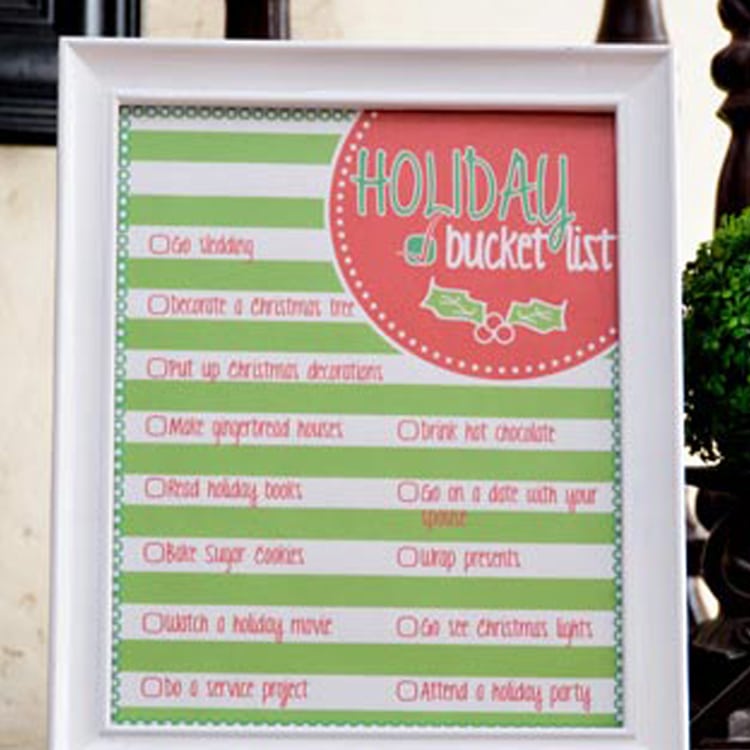 HOLIDAY
bucket list
Go sledding
Decorate a Christmas tree
Put up Christmas decorations
Make gingerbread houses
Read holiday books
Bake Sugar Cookies
Watch a holiday movie
Do a service project
Drink hot chocolate
Go on a date with your
spouse
Wrap presents
Go see Christmas lights
Attend a holiday party